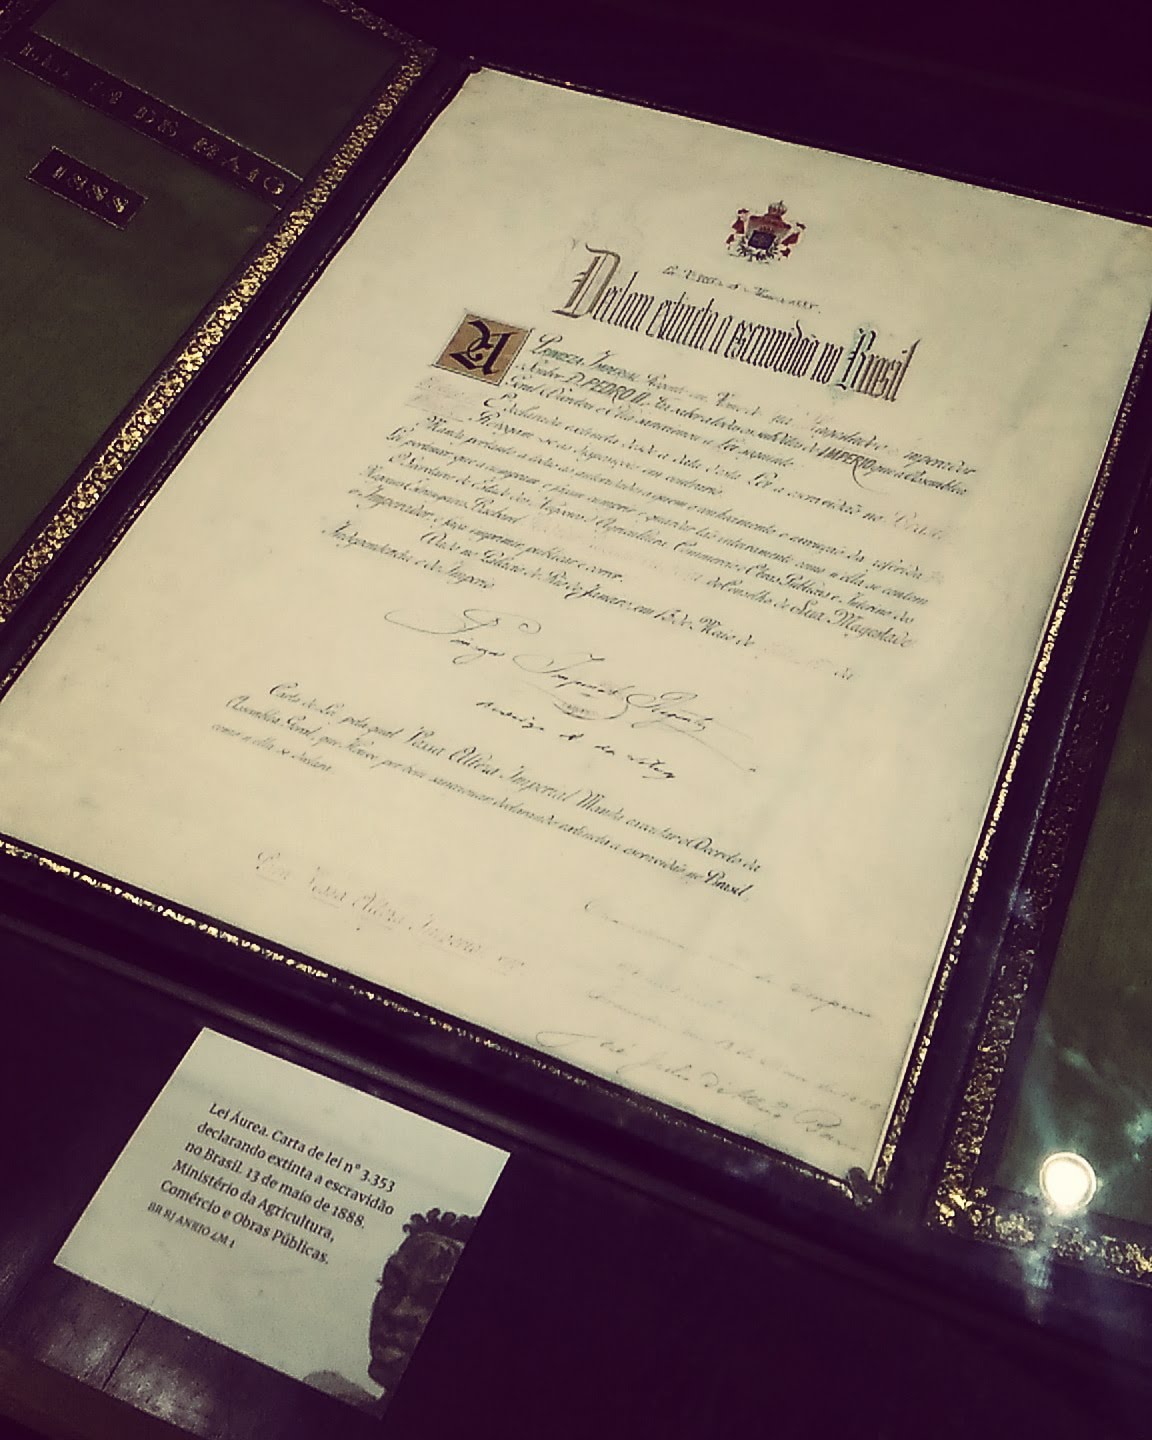 13 DE MAIO
1888
Declara extincta a escravidão no Brasil
A PRINCEZA IMPERIAL Regente em Nome de Sua Magestade o Imperador o
Senhor D. PEDRO II, Faz saber a todos os subditos do IMPERIO que a Assembléa
Geral Decretou e Ella sanccionou a Lei seguinte
É declarada extincta desde a data desta Lei a escravidão no Brazil
Revogam-se as disposições em contrario
Manda portanto a todas as autoridades a quem o conhecimento e execução da referida
Lei pertencer que a cumpram e façam cumprir e guardar tão inteiramente como n'ella se contem
O Secretario de Estado dos Negocios d'Agricultura, Commercio e Obras Publicas e Interino dos
Negocios Estrangeiros, Bacharel do Conselho de Sua Magestade
o Imperador o faça imprimir publicar e correr.
Dado no Palacio do Rio de Janeiro, em 13 de Maio de da
Independencia e do Imperio
Princeza Imperial Regente
Carta de Lei, pela qual Vossa Alteza Imperial Manda executar o Decreto da
Assembléa Geral, que Houve por bem sanccionar declarando extincta a escravidão no Brasil,
como n'ella se declara
Para Vossa Alteza Imperial ver
Lei Áurea. Carta de lei nº 3.353
declarando extinta a escravidão
no Brasil. 13 de maio de 1888.
Ministério da Agricultura,
Comércio e Obras Públicas.
BR RJ ANRIO 4M 1